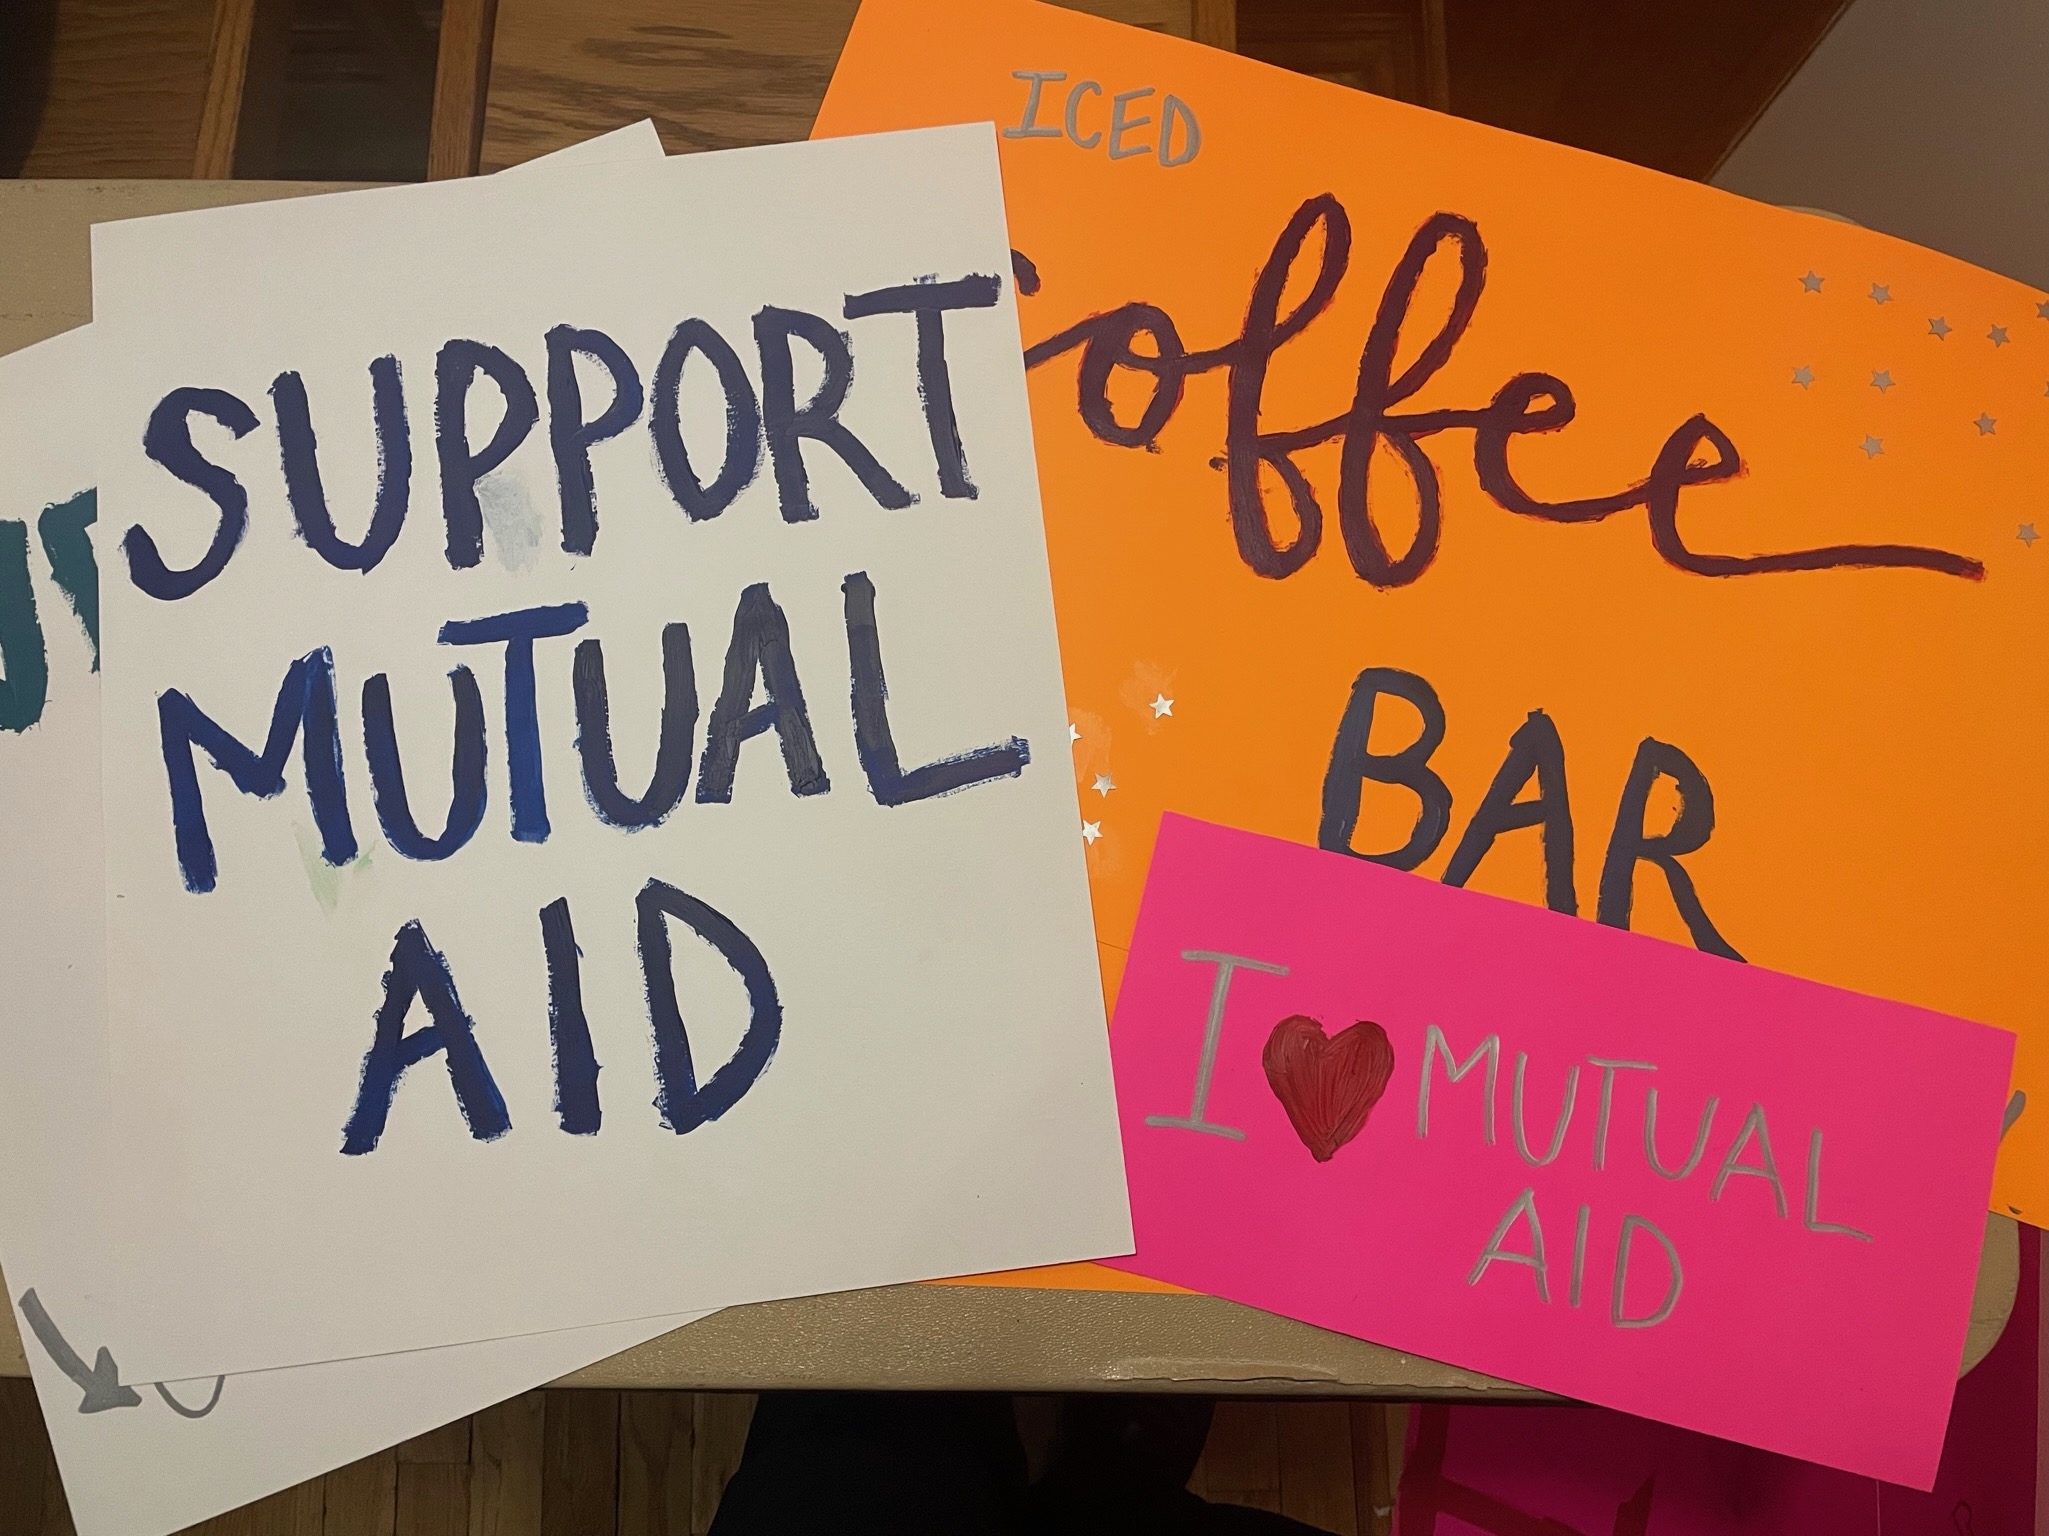 SUPPORT
MUTUAL
AID
ICED
Coffee
BAR
I ❤ MUTUAL
AID